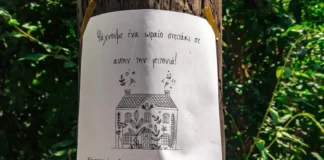 Ψάχνουμε ένα ωραίο σπιτάκι σε
αυτήν την γειτονιά!